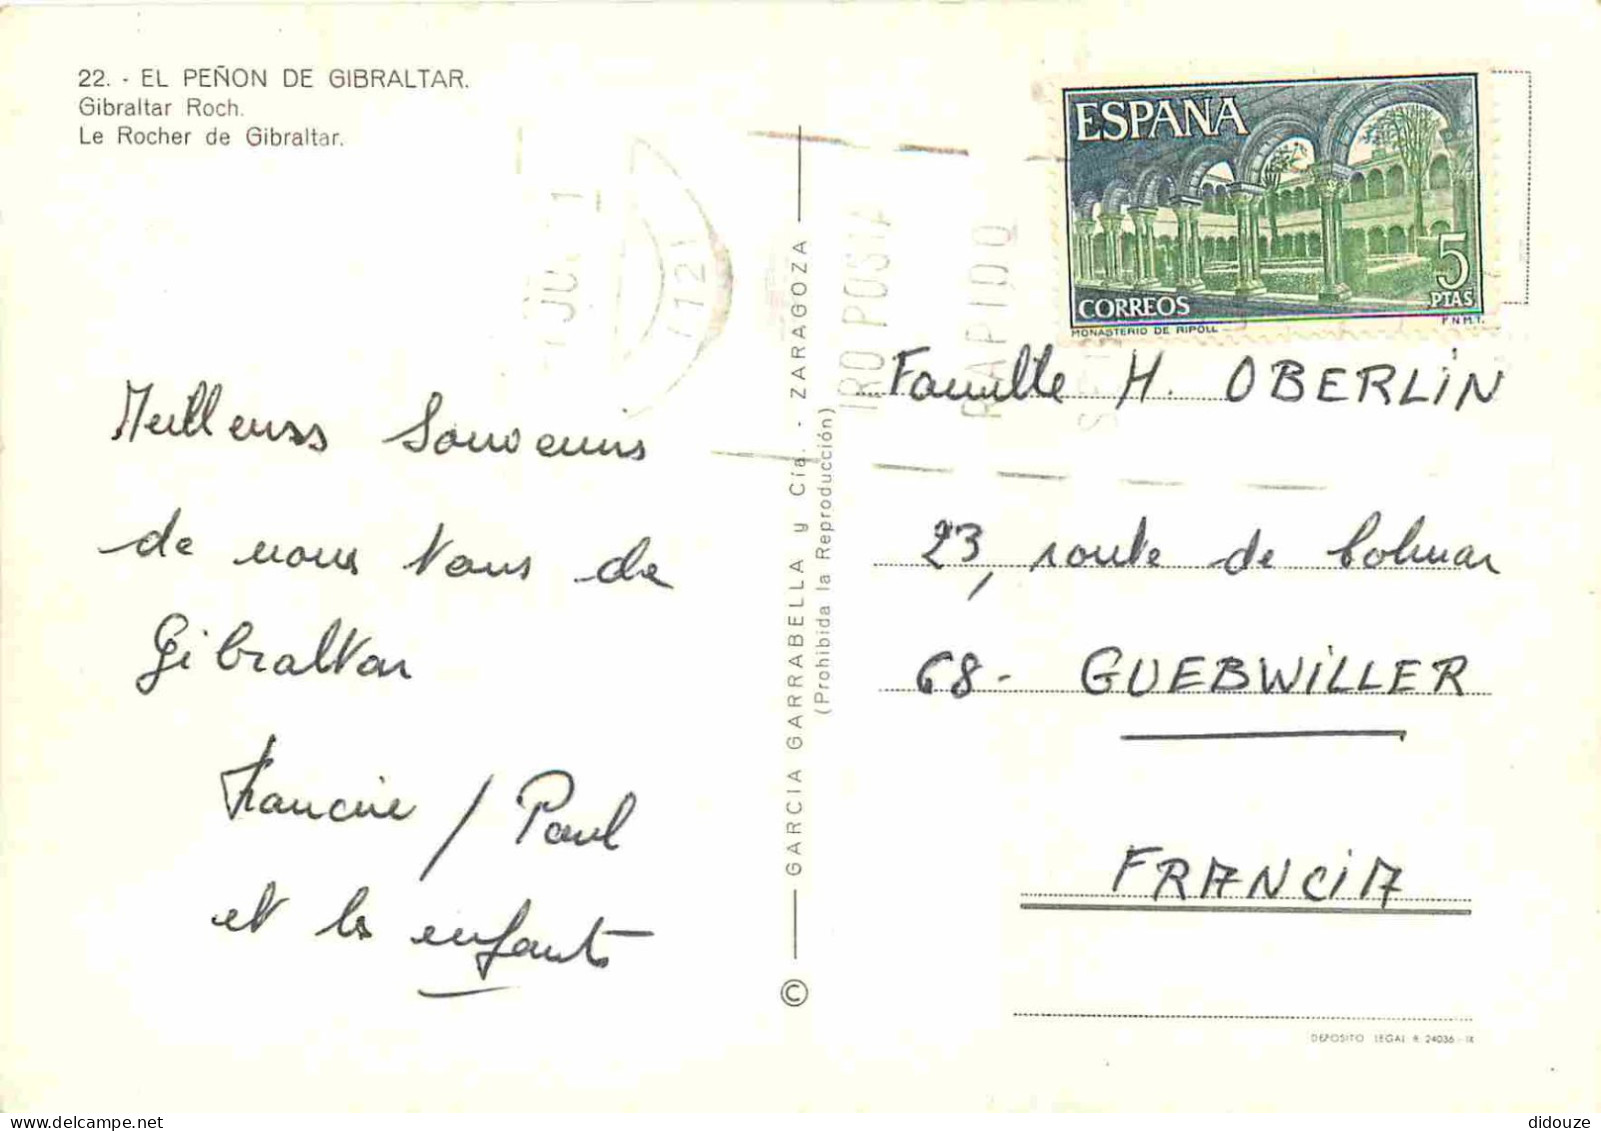 22. - EL PEÑON DE GIBRALTAR.
Gibraltar Roch.
Le Rocher de Gibraltar.
ESPAÑA
5
PTAS
CORREOS
MONASTERIO DE RIPOLL
F.N.M.T.
JU
1
(12)
IRO POSTA
RAPIDO
Meilleurs Souvenirs
de nous tous de
Gibraltar
Francine / Paul
et les enfants
© GARCIA GARRABELLA y Cía. - ZARAGOZA
(Prohibida la Reproducción)
Famille H. OBERLIN
23, route de Colmar
68- GUEBWILLER
FRANCIA
DEPOSITO LEGAL B. 24036 - IX
didouze